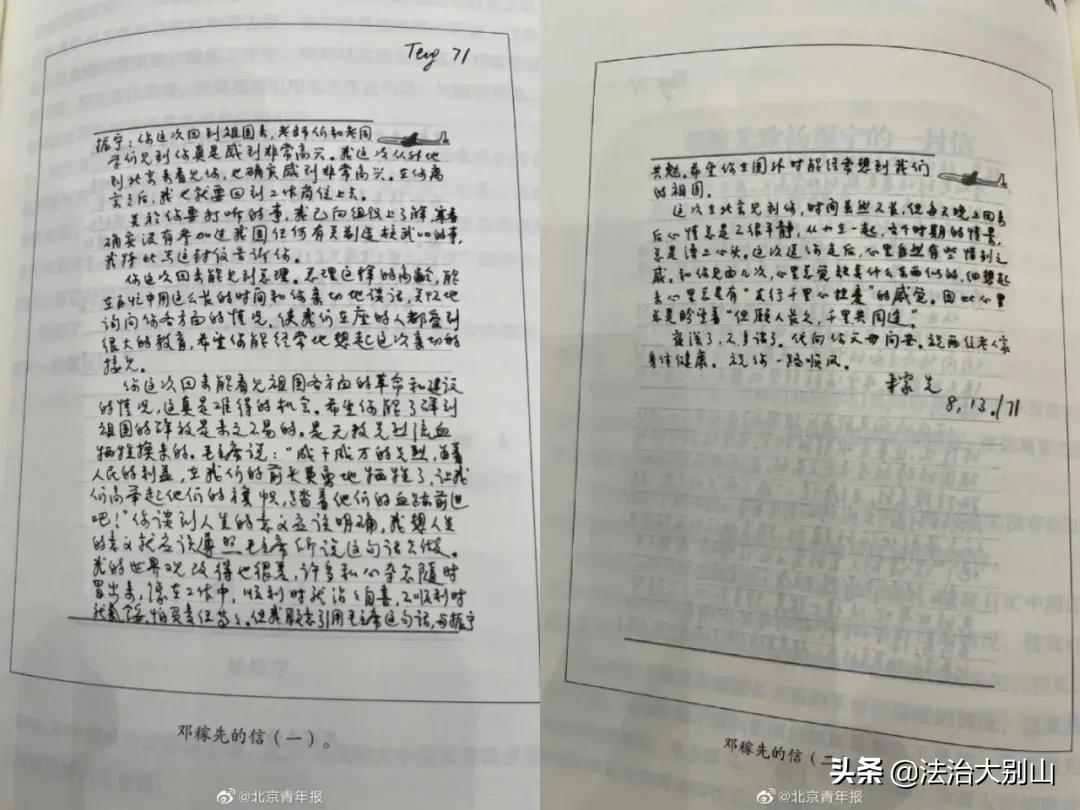 Teng 71
振宁：你这次回到祖国来，老师们和老同
学们见到你真是感到非常高兴。我这次从外地
到北京来看见你，也确实感到非常高兴。在你离
京之后，我也就要回到工作岗位上去。
关于你要打听的事，我已向组织上了解，寒春
确实没有参加过我国任何有关制造核武器的事，
我特此写这封信告诉你。
你这次回来能见到总理。总理这样的高龄，能
在百忙中用这么长的时间和你亲切地谈话，关怀地
询问你各方面的情况，使我们在座的人都受到
很大的教育，希望你能经常地想起这次亲切的
接见。
你这次回来能看见祖国各方面的革命和建设
的情况，这真是难得的机会。希望你能了解到
祖国的解放是来之不易的。是无数先烈流血
牺牲换来的。毛主席说：“成千成万的先烈，为着
人民的利益，在我们的前头英勇地牺牲了，让我
们高举起他们的旗帜，踏着他们的血迹前进
吧！”你谈到人生的意义应该明确，我想人生
的意义就应该遵照毛主席所说这句话去做。
我的世界观改得也很差，许多私心杂念随时
冒出来，像在工作中，顺利时就沾沾自喜，不顺利时
就气馁，怕负责任等等。但我愿意引用毛主席这句话，与振宁
邓稼先的信（一）。
@北京青年报
共勉。希望你在国外时能经常想到我们
的祖国。
这次在北京见到你，时间虽然不长，但每天晚上回来
后心情总是不很平静，从小在一起，各个时期的情景，
总是涌上心头。这次送你走后，心里自然有些惜别之
感。和你见面几次，心里总觉缺点什么东西似的，细想起
来心里总是有“友行千里心担忧”的感觉。因此心里
总是盼望着“但愿人长久，千里共同途”。
夜深了，不多谈了。代向你父母问安。祝两位老人家
身体健康。祝你一路顺风。
稼先
8.13./71
邓稼先的信（二
头条 @法治大别山
@北京青年报